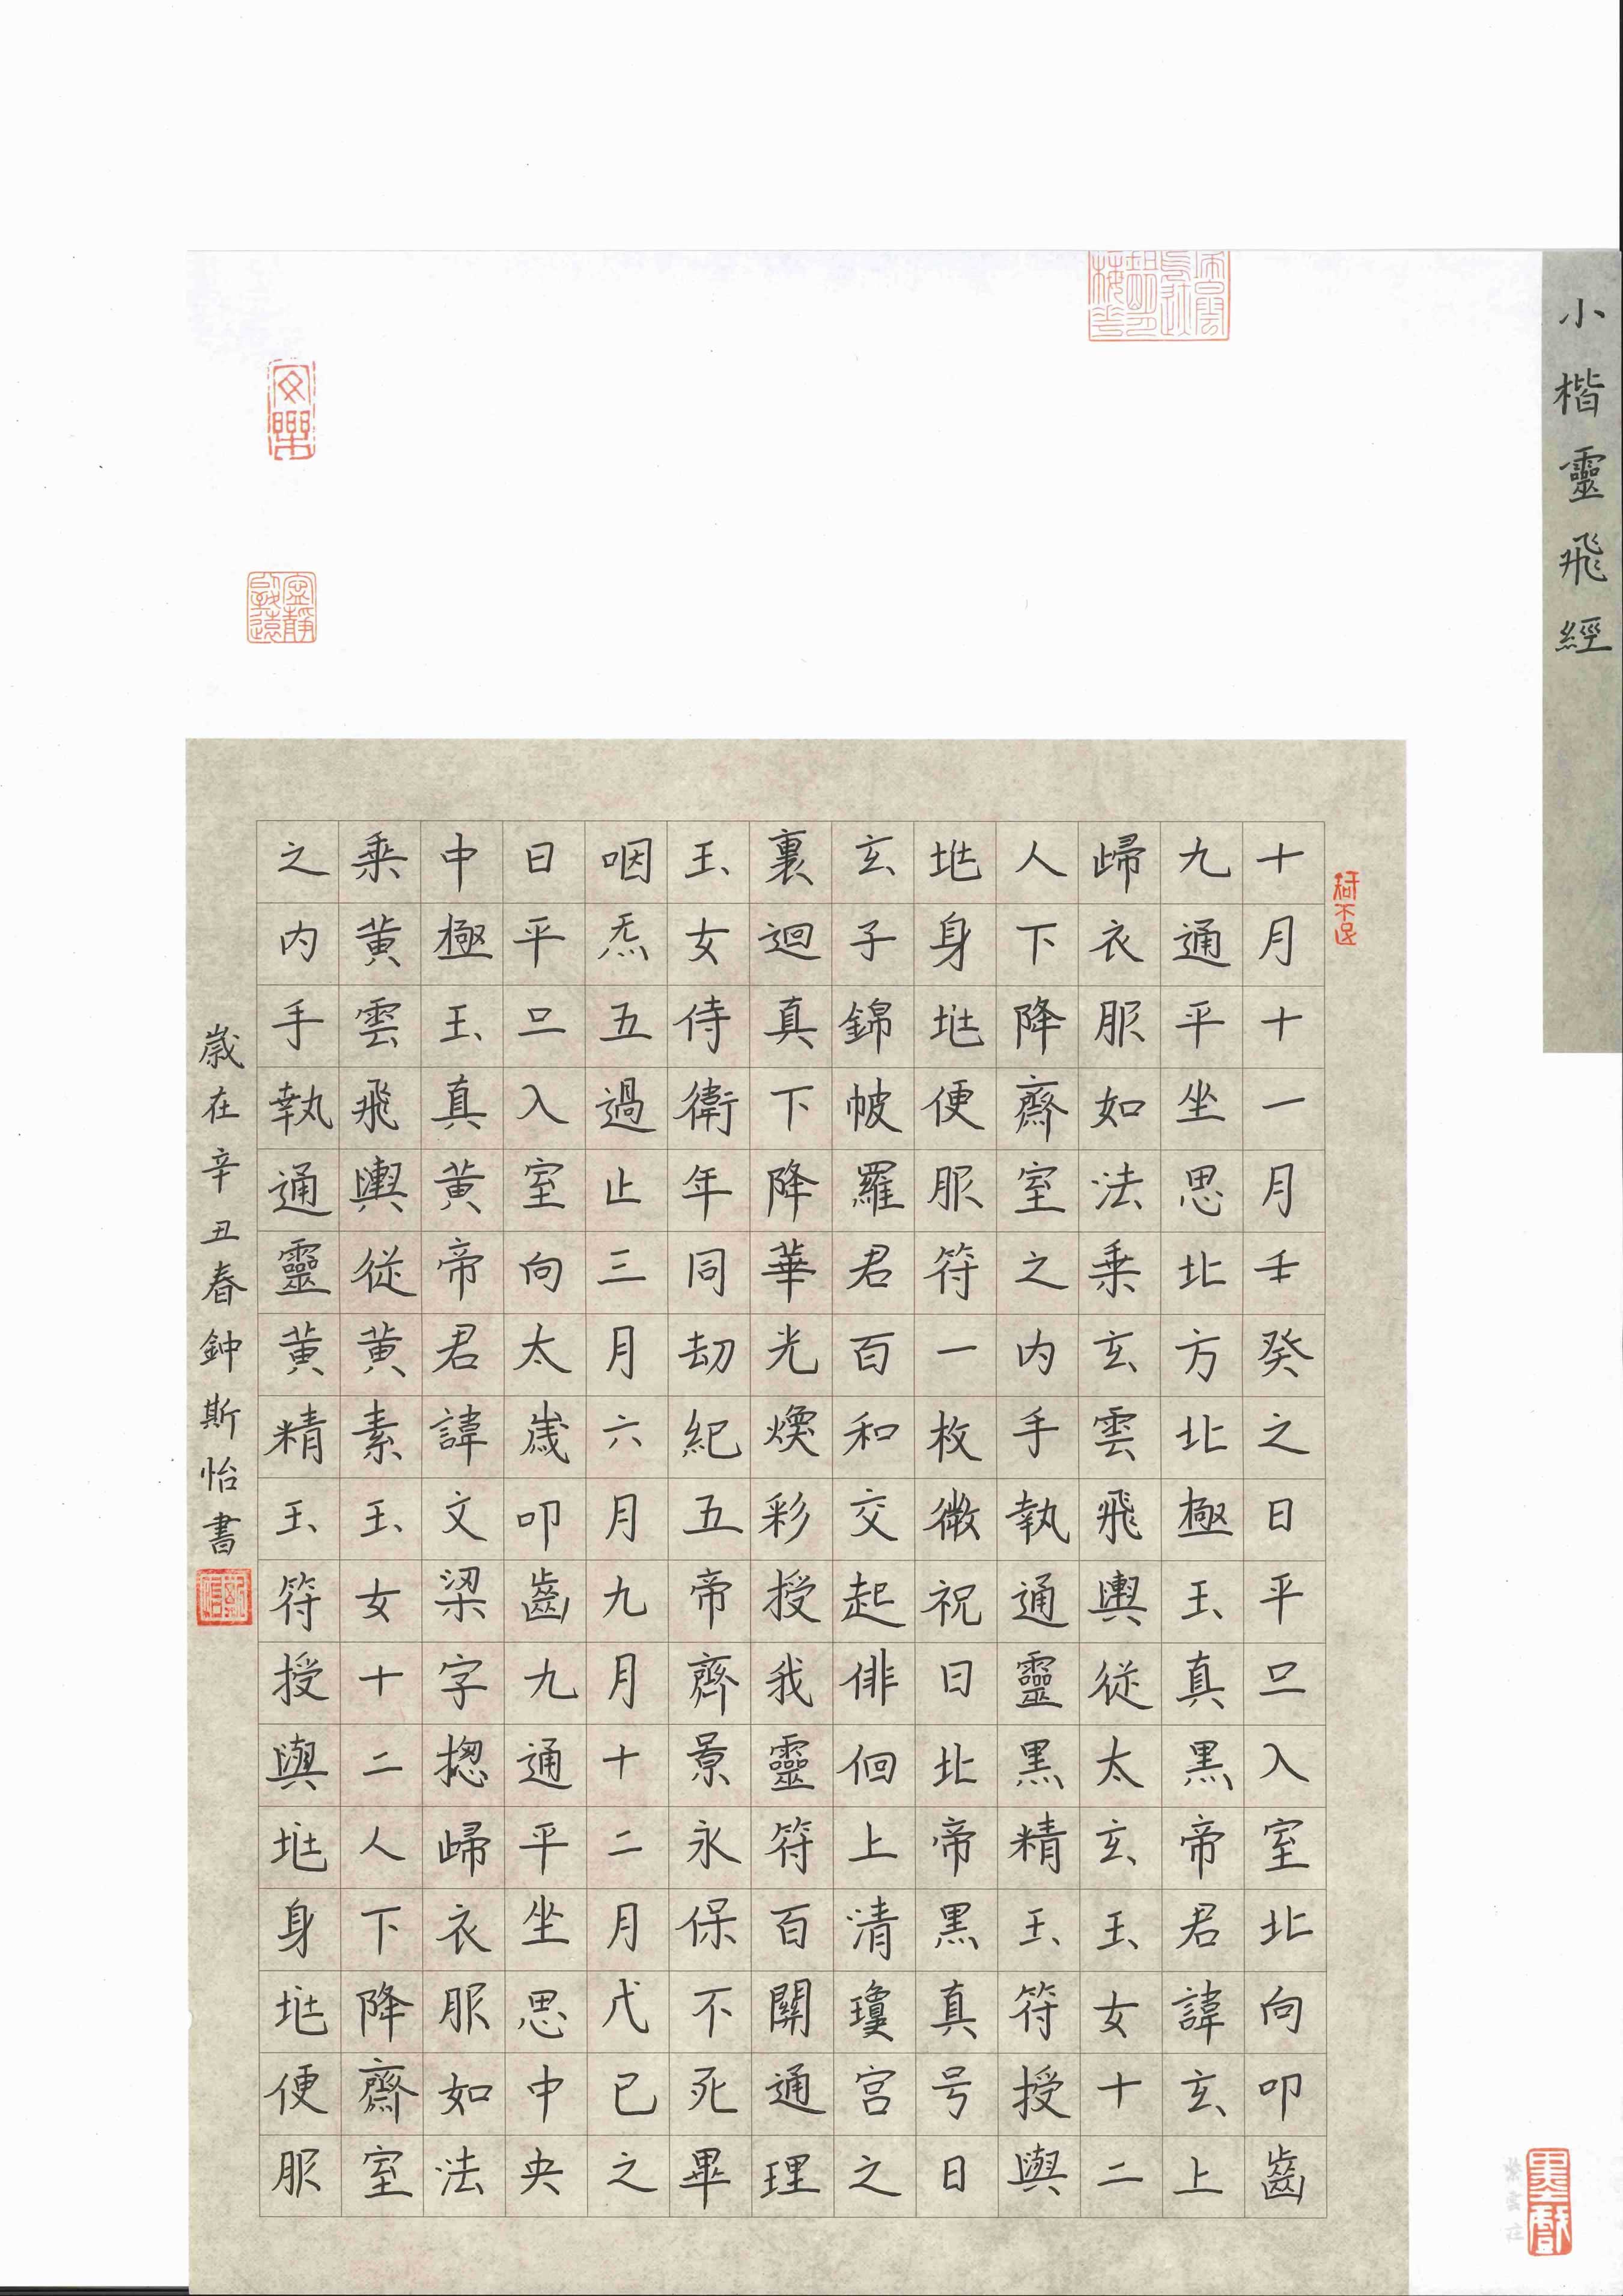 小楷靈飛經
知不足
十月十一月壬癸之日平旦入室北向叩齒
九通平坐思北方北極玉真黑帝君諱玄上
歸衣服如法乗玄雲飛輿從太玄玉女十二
人下降齋室之内手執通靈黒精玉符授與
地身地便服符一枚微祝曰北帝黑真号曰
玄子錦帔羅君百和交起俳佪上清瓊宫之
裏迴真下降華光煥彩授我靈符百關通理
玉女侍衛年同劫紀五帝齊景永保不死畢
咽炁五過止三月六月九月十二月戊己之
日平旦入室向太歲叩齒九通平坐思中央
中極玉真黄帝君諱文梁字揔歸衣服如法
乗黄雲飛輿從黄素玉女十二人下降齋室
之内手執通靈黄精玉符授與地身地便服
歲在辛丑春鈡斯怡書
寧靜致遠
墨戲